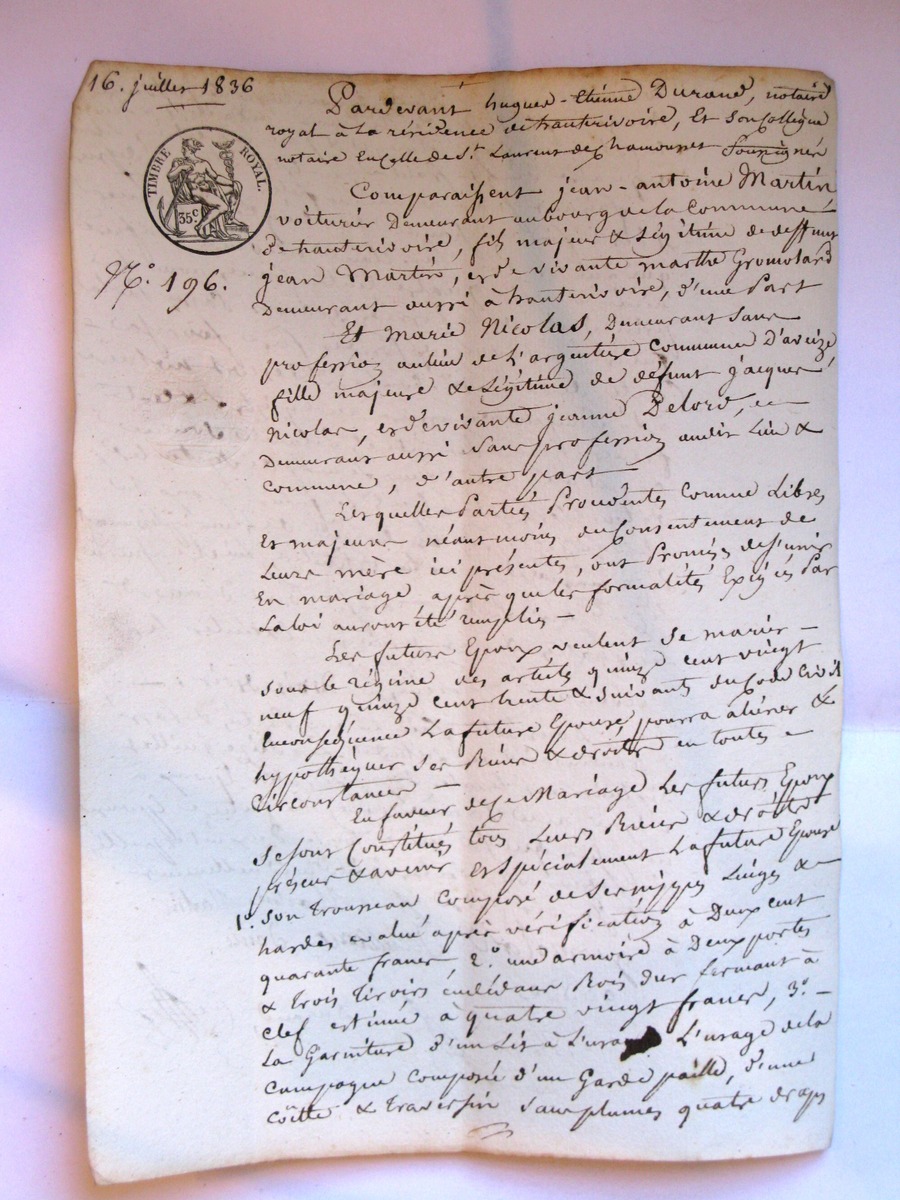 16. juillet 1836
TIMBRE ROYAL.
35c.
N.o 196.
Pardevant hugues-Etienne Durand, notaire
royal à la résidence de hauterivoire, Et son Collègue
notaire En celle de St. Laurent de Chamousset Soussignés
Comparaissent jean-antoine Martin
voiturier Demeurant au bourg de la Commune
de hauterivoire, fils majeur & Légitime de deffunt
jean Martin, et de vivante marthe Gromolard
Demeurant aussi à hauterivoire, d'une Part
Et Marie Nicolas, Demeurant Sans
profession au lieu de L'argentière Commune D'aveize
fille majeure & Légitime de défunt jacques
Nicolas, et de vivante jeanne Delord,
Demeurant aussi Sans profession audit Lieu &
Commune, d'autre part
Lesquelles Parties Procédentes Comme Libres
Et majeures néantmoins du Consentement de
Leurs mère ici présentes, ont Promis de s'unir
En mariage après que les formalités Exigées Par
La loi auront été remplies —
Les futurs Epoux veulent se marier —
Sous le régime des articles quinze cent vingt
neuf quinze cent trente & suivants du Code Civil
En conséquence La future Epouse pourra aliéner &
hypothéquer Ses Biens & droits en toutes —
Circonstances —
En faveur de ce Mariage Les futurs Epoux
Se sont Constitués tous Leurs Biens & droits
présens & avenir Et Spécialement La future Epouse
1o. Son trousseau Composé de Ses nippes Linges &
hardes évalué après vérification à Deux cent
quarante francs 2.o une armoire à Deux portes
& trois Tiroirs Bois dur fermant à
Clef estimée à quatre vingt francs, 3.o —
La Garniture d'un Lit à L'usage L'usage de la
Campagne Composée d'un Garde paille, d'une
Coîtte & Traversin Sans plumes quatre draps